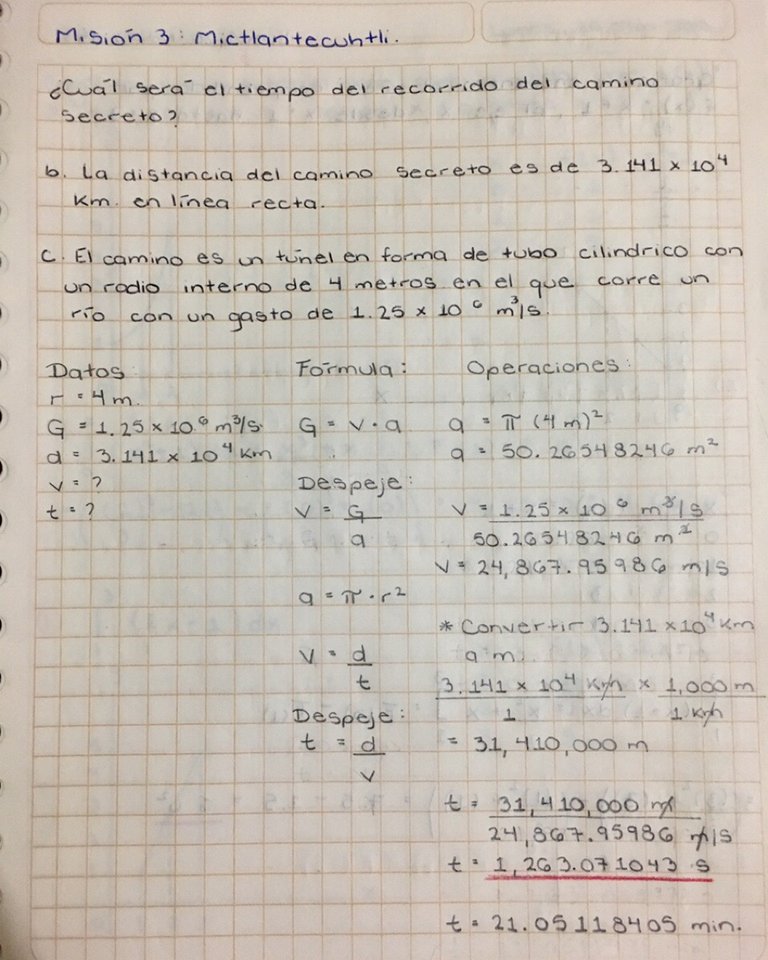 Misión 3: Mictlantecuhtli.
¿Cuál será el tiempo del recorrido del camino
secreto?
b. La distancia del camino secreto es de 3.141 x 10⁴
Km. en línea recta.
c. El camino es un túnel en forma de tubo cilindrico con
un radio interno de 4 metros en el que corre un
río con un gasto de 1.25 x 10⁶ m³/s.
Datos:
r = 4 m.
G = 1.25 x 10⁶ m³/s.
d = 3.141 x 10⁴ Km
v = ?
t = ?
Fórmula:
G = v · a
Despeje:
v = G
a
a = π · r²
v = d
t
Despeje:
t = d
v
Operaciones:
a = π (4 m)²
a = 50.26548246 m²
v = 1.25 x 10⁶ m³/s
50.26548246 m²
v = 24,867.95986 m/s
* Convertir 3.141 x 10⁴ Km
a m.
3.141 x 10⁴ Km x 1,000 m
1 1 Km
= 31,410,000 m
t = 31,410,000 m
24,867.95986 m/s
t = 1,263.071043 s
t = 21.05118405 min.